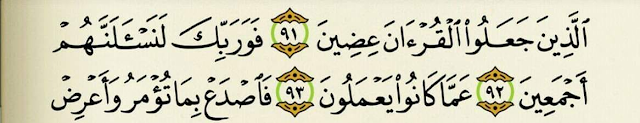 ٱلَّذِينَ جَعَلُوا۟ ٱلْقُرْءَانَ عِضِينَ ٩١ فَوَرَبِّكَ لَنَسْـَٔلَنَّهُمْ
أَجْمَعِينَ ٩٢ عَمَّا كَانُوا۟ يَعْمَلُونَ ٩٣ فَٱصْدَعْ بِمَا تُؤْمَرُ وَأَعْرِضْ